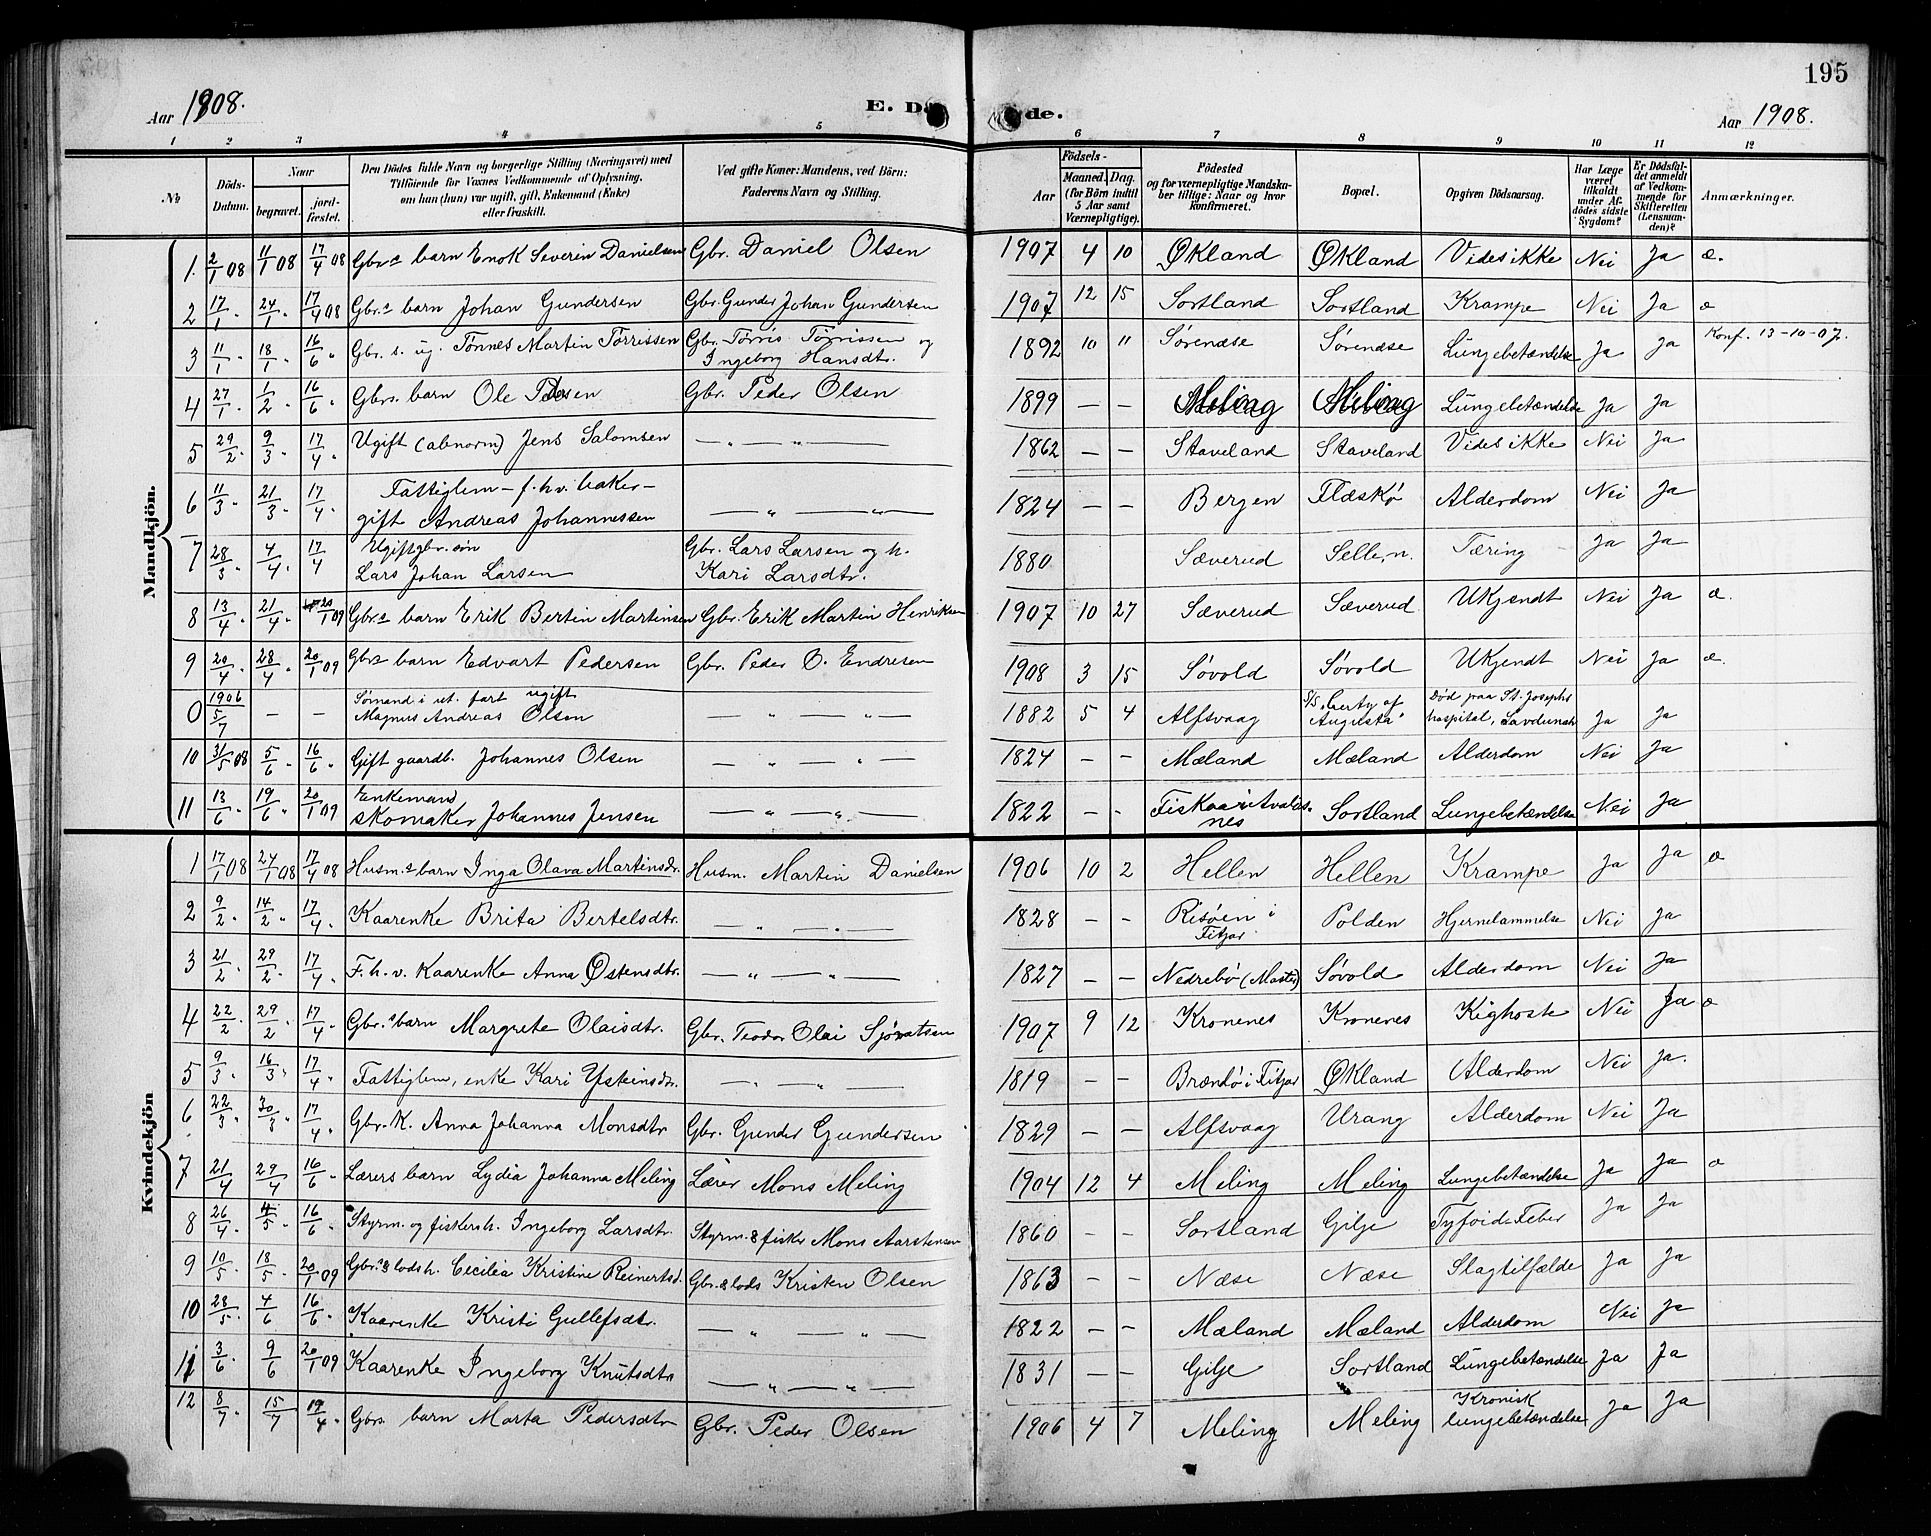 195
Aar 1908. E. Dø de. Aar 1908.
1 2 3 4 5 6 7 8 9 10 11 12
No Döds-Datum. Naar begravet. jord-fæstet. Den Dödes fulde Navn og borgerlige Stilling (Næringsvei) med Tilföiende for Voxnes Vedkommende af Oplysning, om han (hun) var ugift, gift, Enkemand (Enke) eller fraskilt. Ved gifte Koner: Mandens, ved Börn: Faderens Navn og Stilling. Aar Födsels- Maaned. Dag. (for Börn indtil 5 Aar samt Værnepligtige). Födested og for værnepligtige Mandskaber tillige: Naar og hvor konfirmeret. Bopæl. Opgiven Dödsaarsag. Har Læge været tilkaldt under Afdödes sidste Sygdom? Er Dödsfaldet anmeldt af Vedkommende for Skifteretten (Lensmanden)? Anmærkninger.
Mandkjön.
1. 2/1 08 11/1 08 17/4 08 Gbrs barn Enok Severin Danielsen Gbr. Daniel Olsen 1907 4 10 Økland Økland Vides ikke Nei Ja æ.
2 17/1 . 24/1 . 17/4 08 Gbrs barn Johan Gundersen Gbr. Gunder Johan Gundersen 1907 12 15 Sortland Sortland Krampe Nei Ja æ
3 11/1 . 18/1 . 16/6 " Gbr. s. ug. Tönnes Martin Törrissen Gbr. Törris Törrissen og Ingeborg Hansdtr. 1892 10 11 Sørenæse Sørenæse Lungebetændelse Ja Ja Konf. 13-10-07.
4 27/1 . 1/2 . 16/6 . Gbrs. barn Ole Pedersen Gbr. Peder Olsen 1899 — — Meling Meling Lungebetændelse Ja Ja
5 29/2 . 9/3 . 17/4 . Ugift (abnorm) Jens Salomsen — " — " — 1862 — — Staveland Staveland Vides ikke Nei Ja
6 11/3 . 21/3 . 17/4 . Fattiglem - f. h.v. baker - gift Andreas Johannessen — " — " — 1824 — — Bergen Flæskø Alderdom Nei Ja
7 28/3 . 4/4 . 17/4 Ugift gbr. søn Lars Johan Larsen Gbr. Lars Larsen og h. Kari Larsdtr. 1880 Sæverud Selle, n. Tæring Ja Ja
8 13/4 . 21/4 . 20/1 09 Gbrs barn Erik Bertin Martinsen Gbr. Erik Martin Henriksen 1907 10 27 Sæverud Sæverud Ukjendt Nei Ja æ.
9 20/4 . 28/4 . 20/1 09 Gbrs barn Edvart Pedersen Gbr. Peder O. Endresen 1908 3 15 Søvold Søvold Ukjendt Nei Ja æ.
0 1906 5/7 — — Sømand i ut. fart ugift Magnus Andreas Olsen — " — " — 1882 5 4 Alfsvaag S/S. "Certy af Augusta" Död paa St. Josephs hospital, Ja Ja
10 31/5 08 5/6 . 16/6 . Gift gaardb. Johannes Olsen — " — " — 1824 — — Mæland Mæland Alderdom Nei Ja
11 13/6 . 19/6 . 20/1 09 Enkemand skomaker Johannes Jensen — " — " — 1822 — — Sortland Lungebetændelse Nei Ja
Kvindekjön
1 17/1 08 24/1 08 17/4 08 Husm.s barn Inga Olava Martinsdr. Husm. Martin Danielsen 1906 10 2 Hellen Hellen Krampe Ja Ja æ
2 9/2 . 14/2 . 17/4 . Kaarenke Brita Bertelsdtr. — " — " — 1828 — — Risøen i Fitjar Polden Hjernelammelse Nei Ja
3 21/2 . 29/2 . 17/4 . F. h. v. Kaarenke Anna Østensdtr. — " — " — 1827 — — Nedrebø (Moster) Søvold Alderdom Nei Ja
4 22/2 . 29/2 . 17/4 . Gbr.s barn Margrete Olaisdtr. Gbr. Teodor Olai Sjovatsen 1907 9 12 Kronenes Kronenes Kighoste Nei Ja æ
5 9/3 . 16/3 . 17/4 . Fattiglem, enke Kari Ysteinsdr. — " — " — 1819 — — Brændö i Fitjar Økland Alderdom Nei Ja.
6 22/3 . 30/3 . 17/4 . Gbr. K. Anna Johanna Monsdtr Gbr. Gunder Gundersen 1829 — — Alfsvaag Urang Alderdom Nei Ja
7 21/4 29/4 16/6 . Lærers barn Lydia Johanna Meling Lærer Mons Meling 1904 12 4 Meling Meling Lungebetændelse Ja Ja æ
8 26/4 . 4/5 . 16/6 . Styrm. og fiskersh. Ingeborg Larsdtr. Styrm. & fisker Mons Aarstensen 1860 — — Sortland Gilje Tyfoid-Feber Ja Ja
9 10/5 . 18/5 . 20/1 09 Gbr.s & lods h. Cecilia Kristine Reinertsd. Gbr. & lods Kristen Olsen 1863 — — Næse Næse Slagtilfælde Ja Ja
10 28/5 . 4/6 16/6 . Kaarenke Kristi Gullefsdtr. — " — " — 1822 — — Mæland Mæland Alderdom Nei Ja
11 3/6 . 9/6 20/1 09 Kaarenke Ingeborg Knutsdtr — " — " — 1831 — — Gilje Sortland Lungebetændelse Ja Ja
12 8/7 . 15/7 19/4 . Gbrs barn Marta Pedersdtr Gbr. Peder Olsen 1906 4 7 Meling Meling Kronisk lungebetændelse Ja Ja